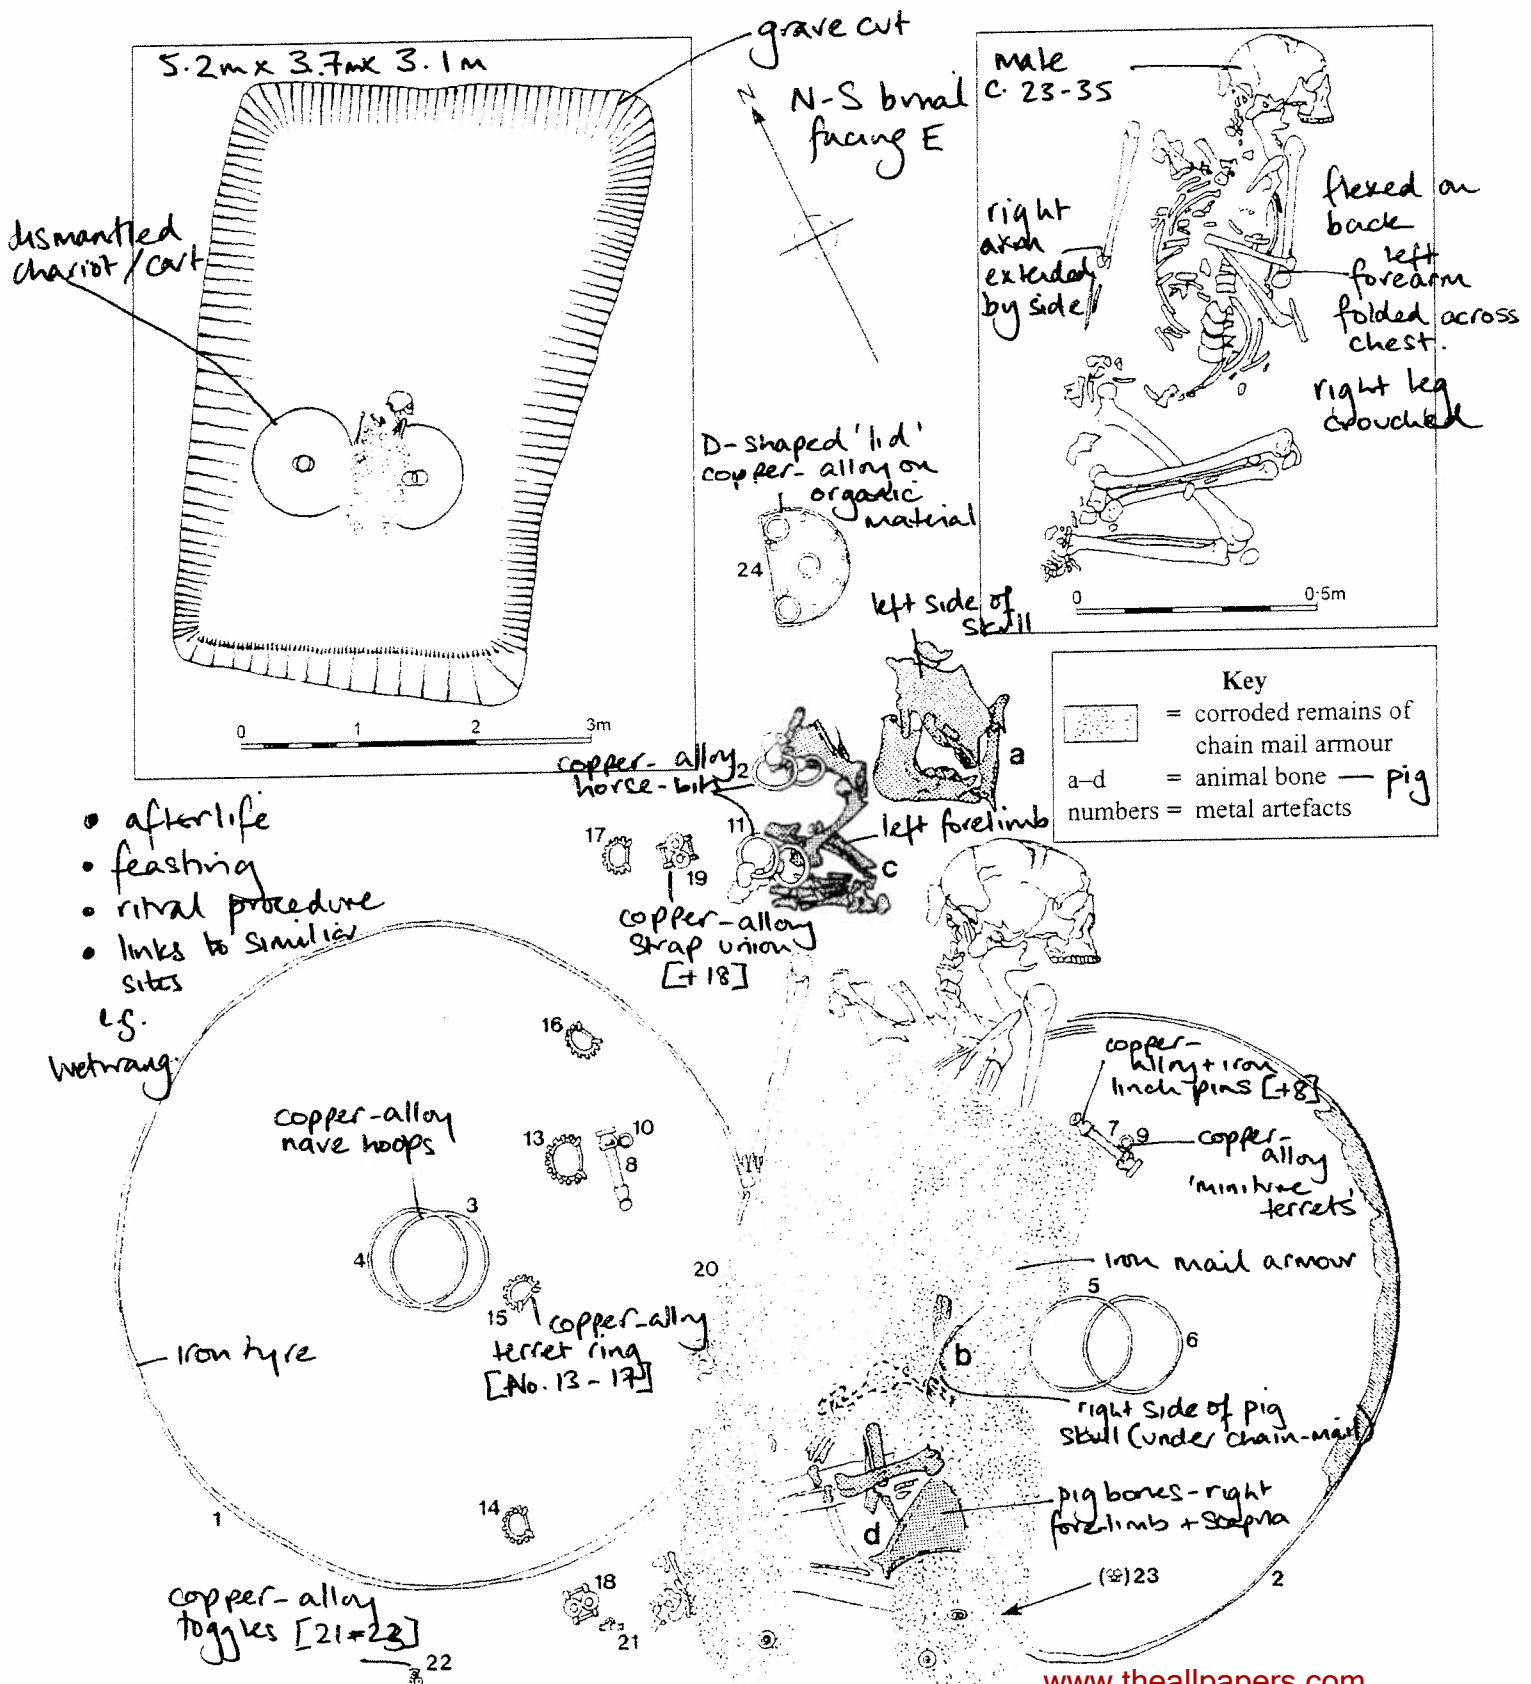 5.2m x 3.7m x 3.1m
grave cut
N
N-S burial
facing E
male
c. 23-35
right
arm
extended
by side
flexed on
back
left
forearm
folded across
chest.
right leg
crouched
0 0·5m
dismantled
chariot/cart
0 1 2 3m
D-shaped 'lid'
copper-alloy on
organic
material
24
left side of
skull
a
Key
= corroded remains of
chain mail armour
a–d = animal bone — pig
numbers = metal artefacts
copper-alloy
horse-bits
12
11
left forelimb
c
17
19
copper-alloy
strap union
[+18]
• afterlife
• feasting
• ritual procedure
• links to similiar
sites
e.g.
Wetwang.
16
copper-alloy
nave hoops
13
10
8
3
4
15
copper-alloy
terret ring
[No. 13-17]
20
iron tyre
14
1
copper-
alloy + iron
linch pins [+8]
7
9
copper-
alloy
'miniture
terrets'
iron mail armour
5
6
b
right side of pig
skull (under chain-mail)
pig bones-right
forelimb + scapula
d
23
2
18
21
copper-alloy
toggles [21-23]
22
www.theallpapers.com